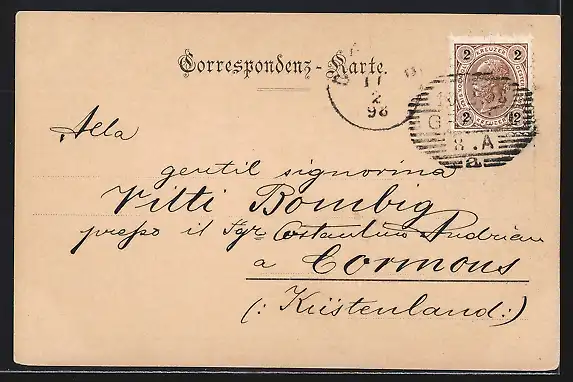 Correspondenz-Karte.
11
2
98
2 KREUZER 2
2 KREUZER 2
G
8 . A
a
Alla
gentil signorina
Vitti Bombig
presso il Sgr Costantino Andrian
a Cormons
(: Küstenland :)